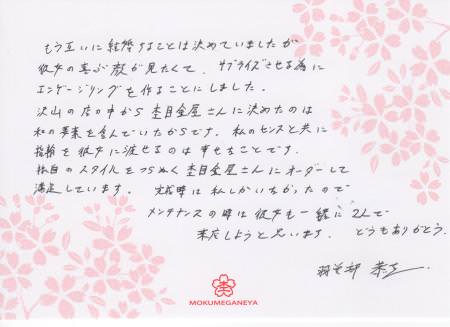 もう互いに結婚することは決めていましたが
彼女の喜ぶ顔が見たくて、サプライズさせる為に
エンゲージリングを作ることにしました。
沢山の店の中から杢目金屋さんに決めたのは
和の要素を含んでいたからです。私のセンスと共に
指輪を彼女に渡せるのは幸せなことです。
独自のスタイルをつらぬく杢目金屋さんにオーダーして
満足しています。 完成時は私しかいなかったので
メンテナンスの時は彼女も一緒に2人で
来店しようと思います。 どうもありがとう。
MOKUMEGANEYA